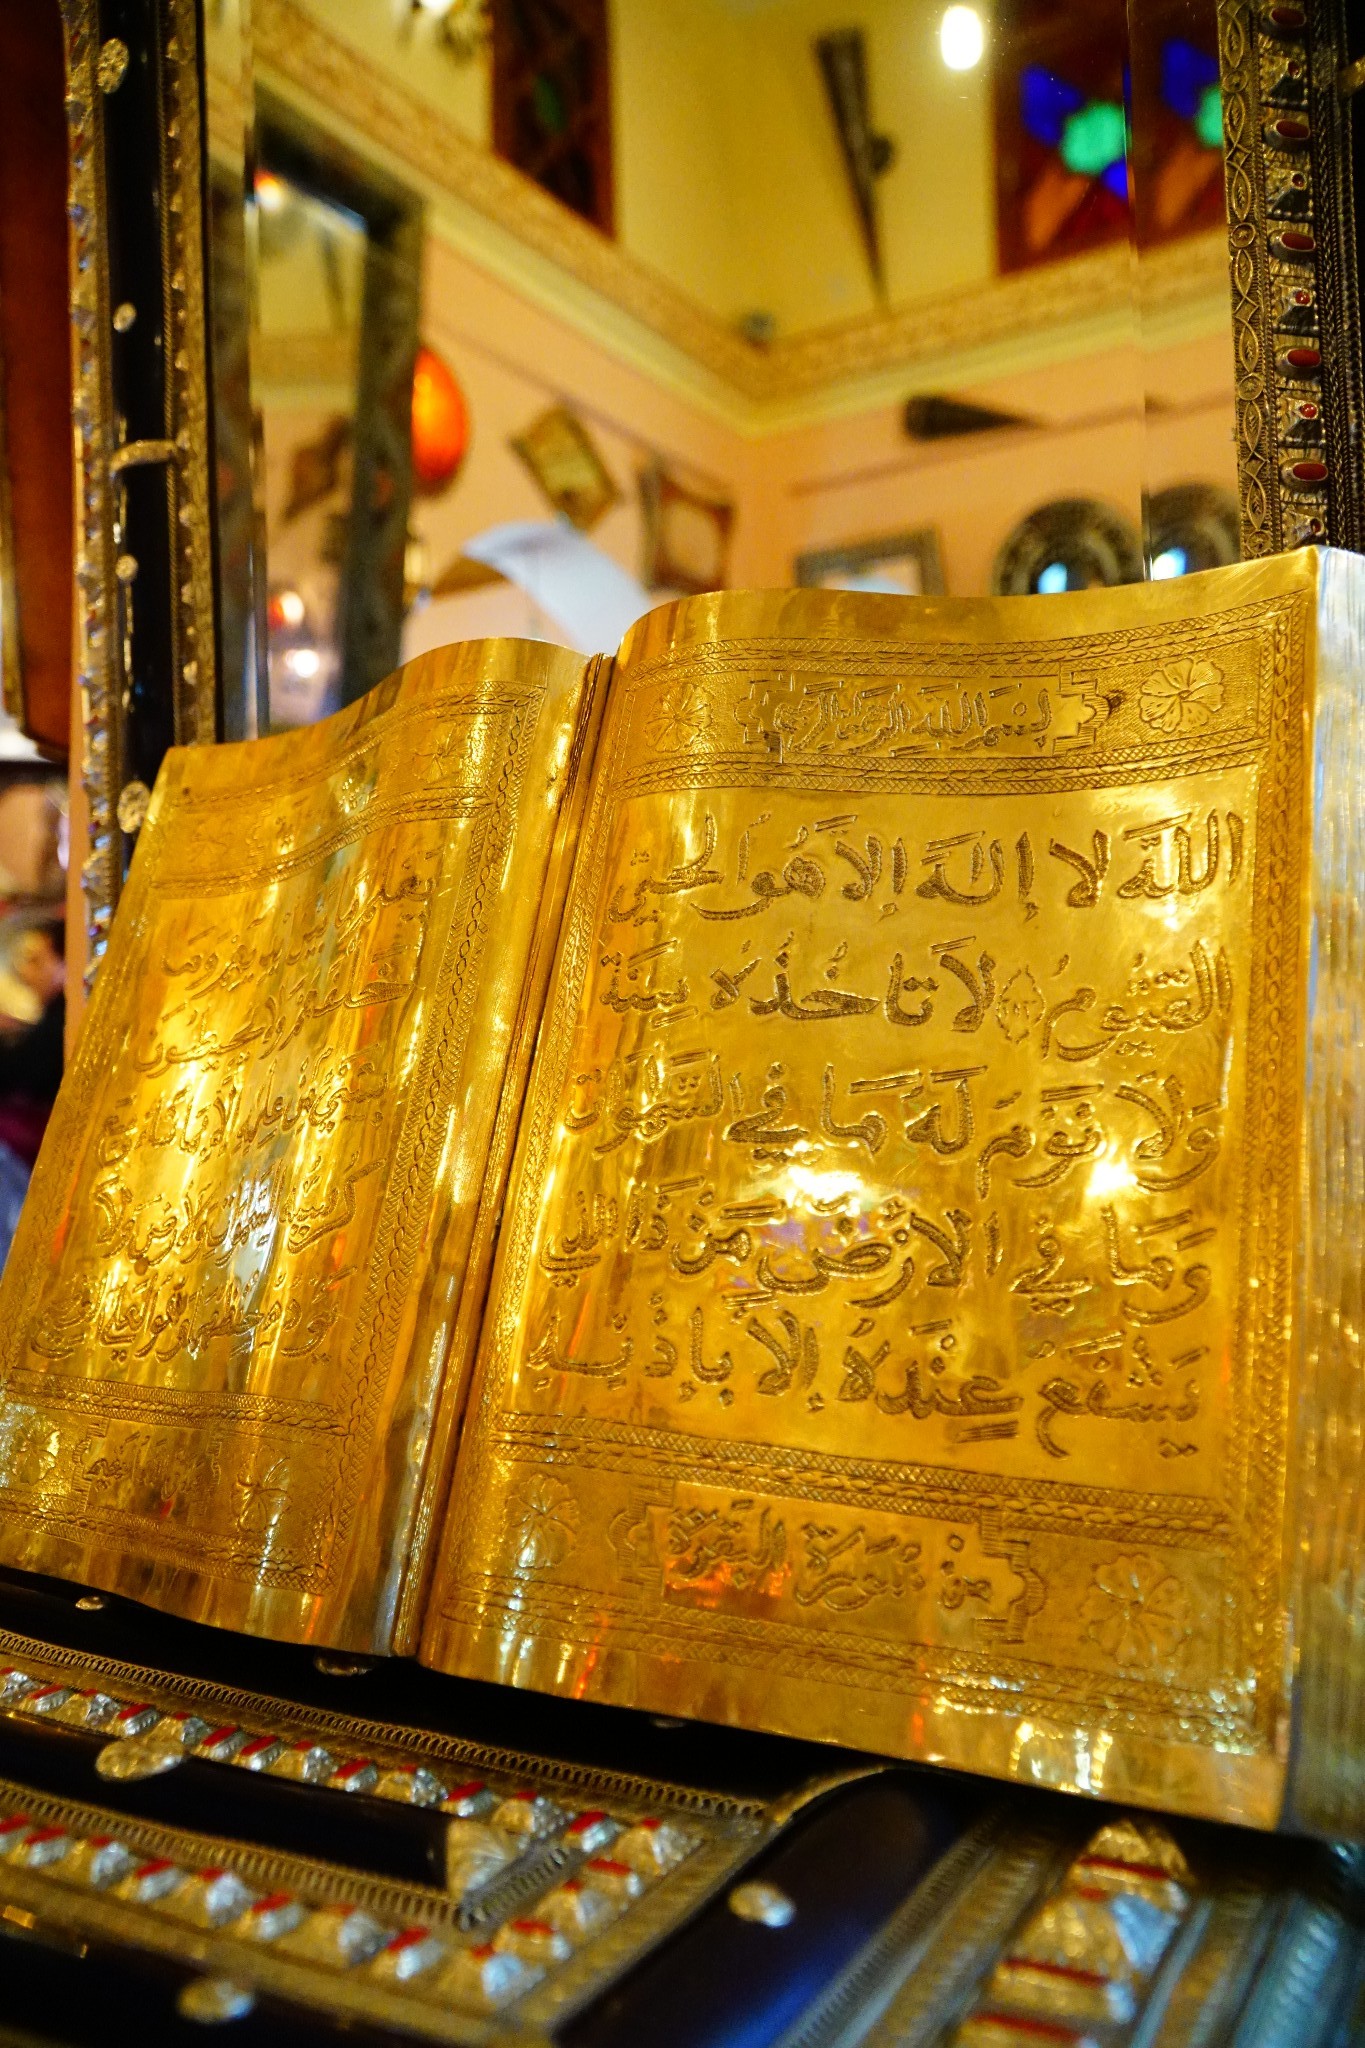 بِسْمِ اللَّهِ الرَّحْمَنِ الرَّحِيمِ
اللَّهُ لَا إِلَهَ إِلاَّ هُوَ الْحَيُّ
القَيُّومُ لاَ تَاخُذُهُ سِنَةٌ
وَلاَ نَوْمٌ لَهُ مَا فِي السَّمَوَاتِ
وَمَا فِي الاَرْضِ مَنْ ذَا الذِي
يَشْفَعُ عِنْدَهُ إِلاَّ بِإِذْنِهِ
مِنْ سُورَةِ الْبَقَرَةِ
يَعْلَمُ مَا بَيْنَ أَيْدِيهِمْ وَمَا
خَلْفَهُمْ وَلاَ يُحِيطُونَ
بِشَيْءٍ مِنْ عِلْمِهِ إِلاَّ بِمَا شَاءَ وَسِعَ
كُرْسِيُّهُ السَّمَوَاتِ وَالاَرْضَ وَلاَ
يَؤُدُهُ حِفْظُهُمَا وَهُوَ الْعَلِيُّ